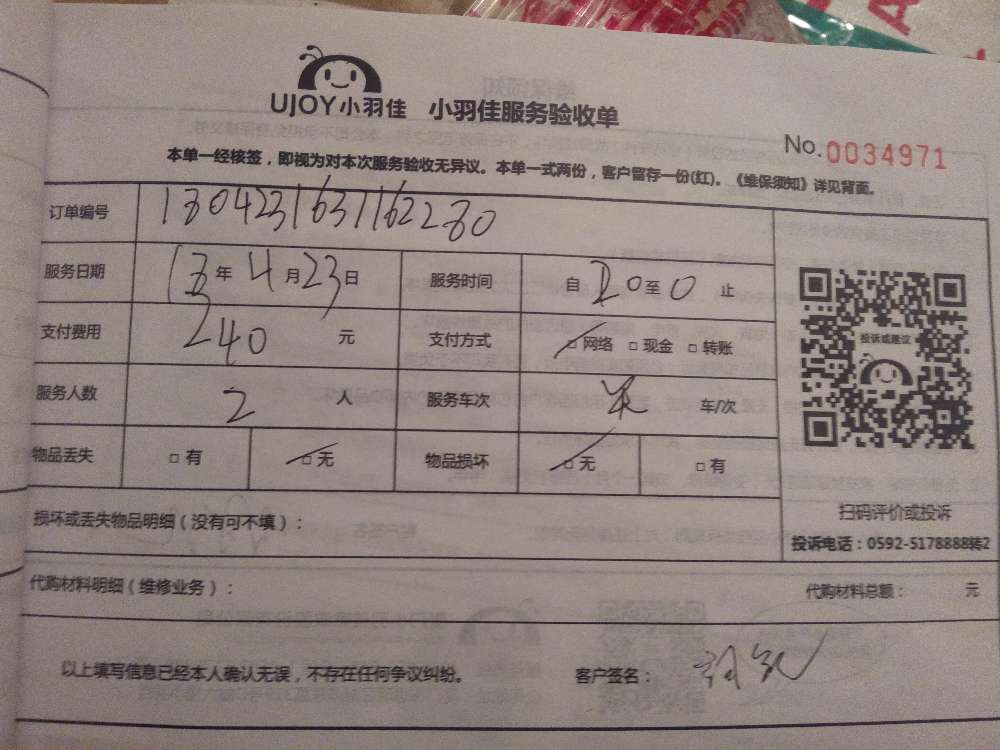 UJOY小羽佳 小羽佳服务验收单
No.0034971
本单一经核签，即视为对本次服务验收无异议。本单一式两份，客户留存一份(红)。《维保须知》详见背面。
订单编号 1304231631162280
服务日期 13年4月23日 服务时间 自 至 止
支付费用 240 元 支付方式 □网络 □现金 □转账
服务人数 2 人 服务车次 车/次
物品丢失 □有 □无 物品损坏 □无 □有
投诉或建议
扫码评价或投诉
投诉电话：0592-5178888转2
损坏或丢失物品明细（没有可不填）：
代购材料明细（维修业务）： 代购材料总额： 元
以上填写信息已经本人确认无误，不存在任何争议纠纷。 客户签名：